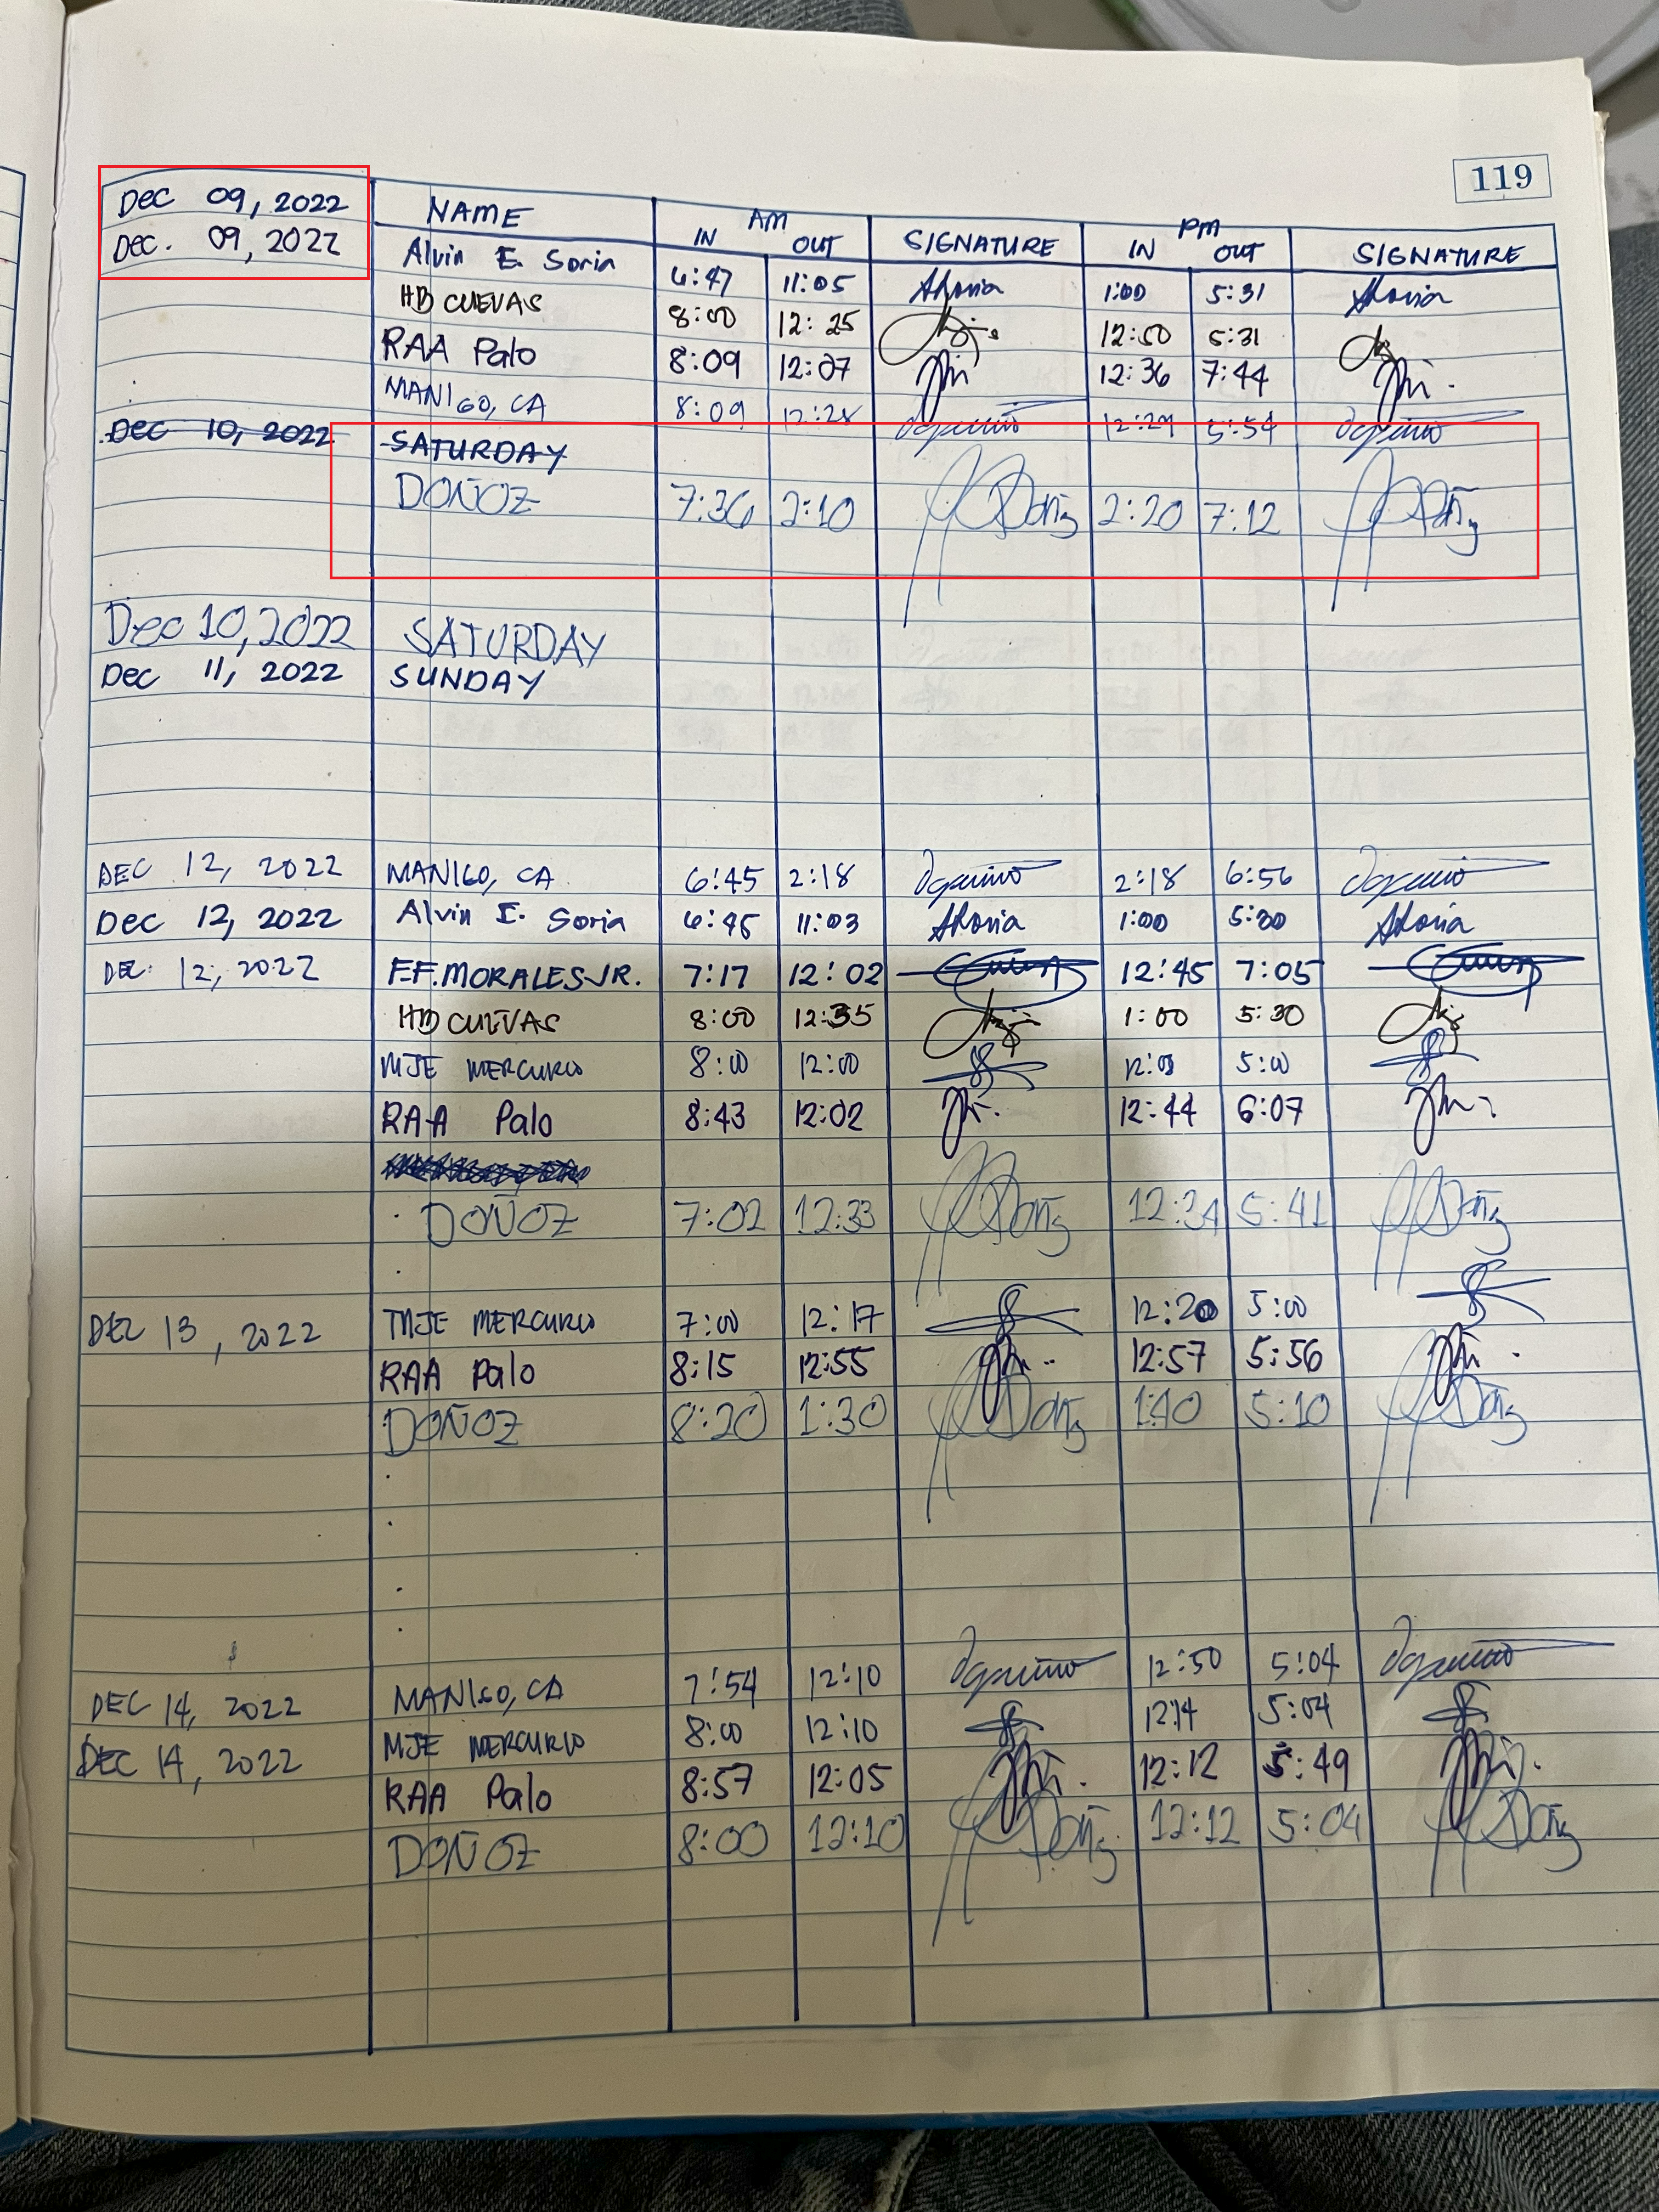 119
Dec 09, 2022 NAME AM PM
IN OUT SIGNATURE IN OUT SIGNATURE
Dec. 09, 2022 Alvin E. Soria 6:47 11:05 ASoria 1:00 5:31 ASoria
HB CUEVAS 8:00 12:25 12:50 5:31
RAA Palo 8:09 12:07 12:36 7:44
MANIGO, CA 8:09 12:28 12:29 5:54
Dec 10, 2022 SATURDAY
DOÑOZ 7:36 2:10 2:20 7:12
Dec 10, 2022 SATURDAY
Dec 11, 2022 SUNDAY
DEC 12, 2022 MANIGO, CA 6:45 2:18 2:18 6:56
Dec 12, 2022 Alvin E. Soria 6:45 11:03 ASoria 1:00 5:30 ASoria
DEC. 12, 2022 F.F. MORALES JR. 7:17 12:02 12:45 7:05
HB CUEVAS 8:00 12:35 1:00 5:30
MJE MERCURIO 8:00 12:00 12:03 5:00
RAA Palo 8:43 12:02 12:44 6:07
DOÑOZ 7:02 12:33 12:34 5:41
DEC 13, 2022 MJE MERCURIO 7:00 12:17 12:20 5:00
RAA Palo 8:15 12:55 12:57 5:56
DOÑOZ 8:20 1:30 1:40 5:10
DEC 14, 2022 MANIGO, CA 7:54 12:10 12:50 5:04
DEC 14, 2022 MJE MERCURIO 8:00 12:10 12:14 5:04
RAA Palo 8:57 12:05 12:12 5:49
DOÑOZ 8:00 12:10 12:12 5:04